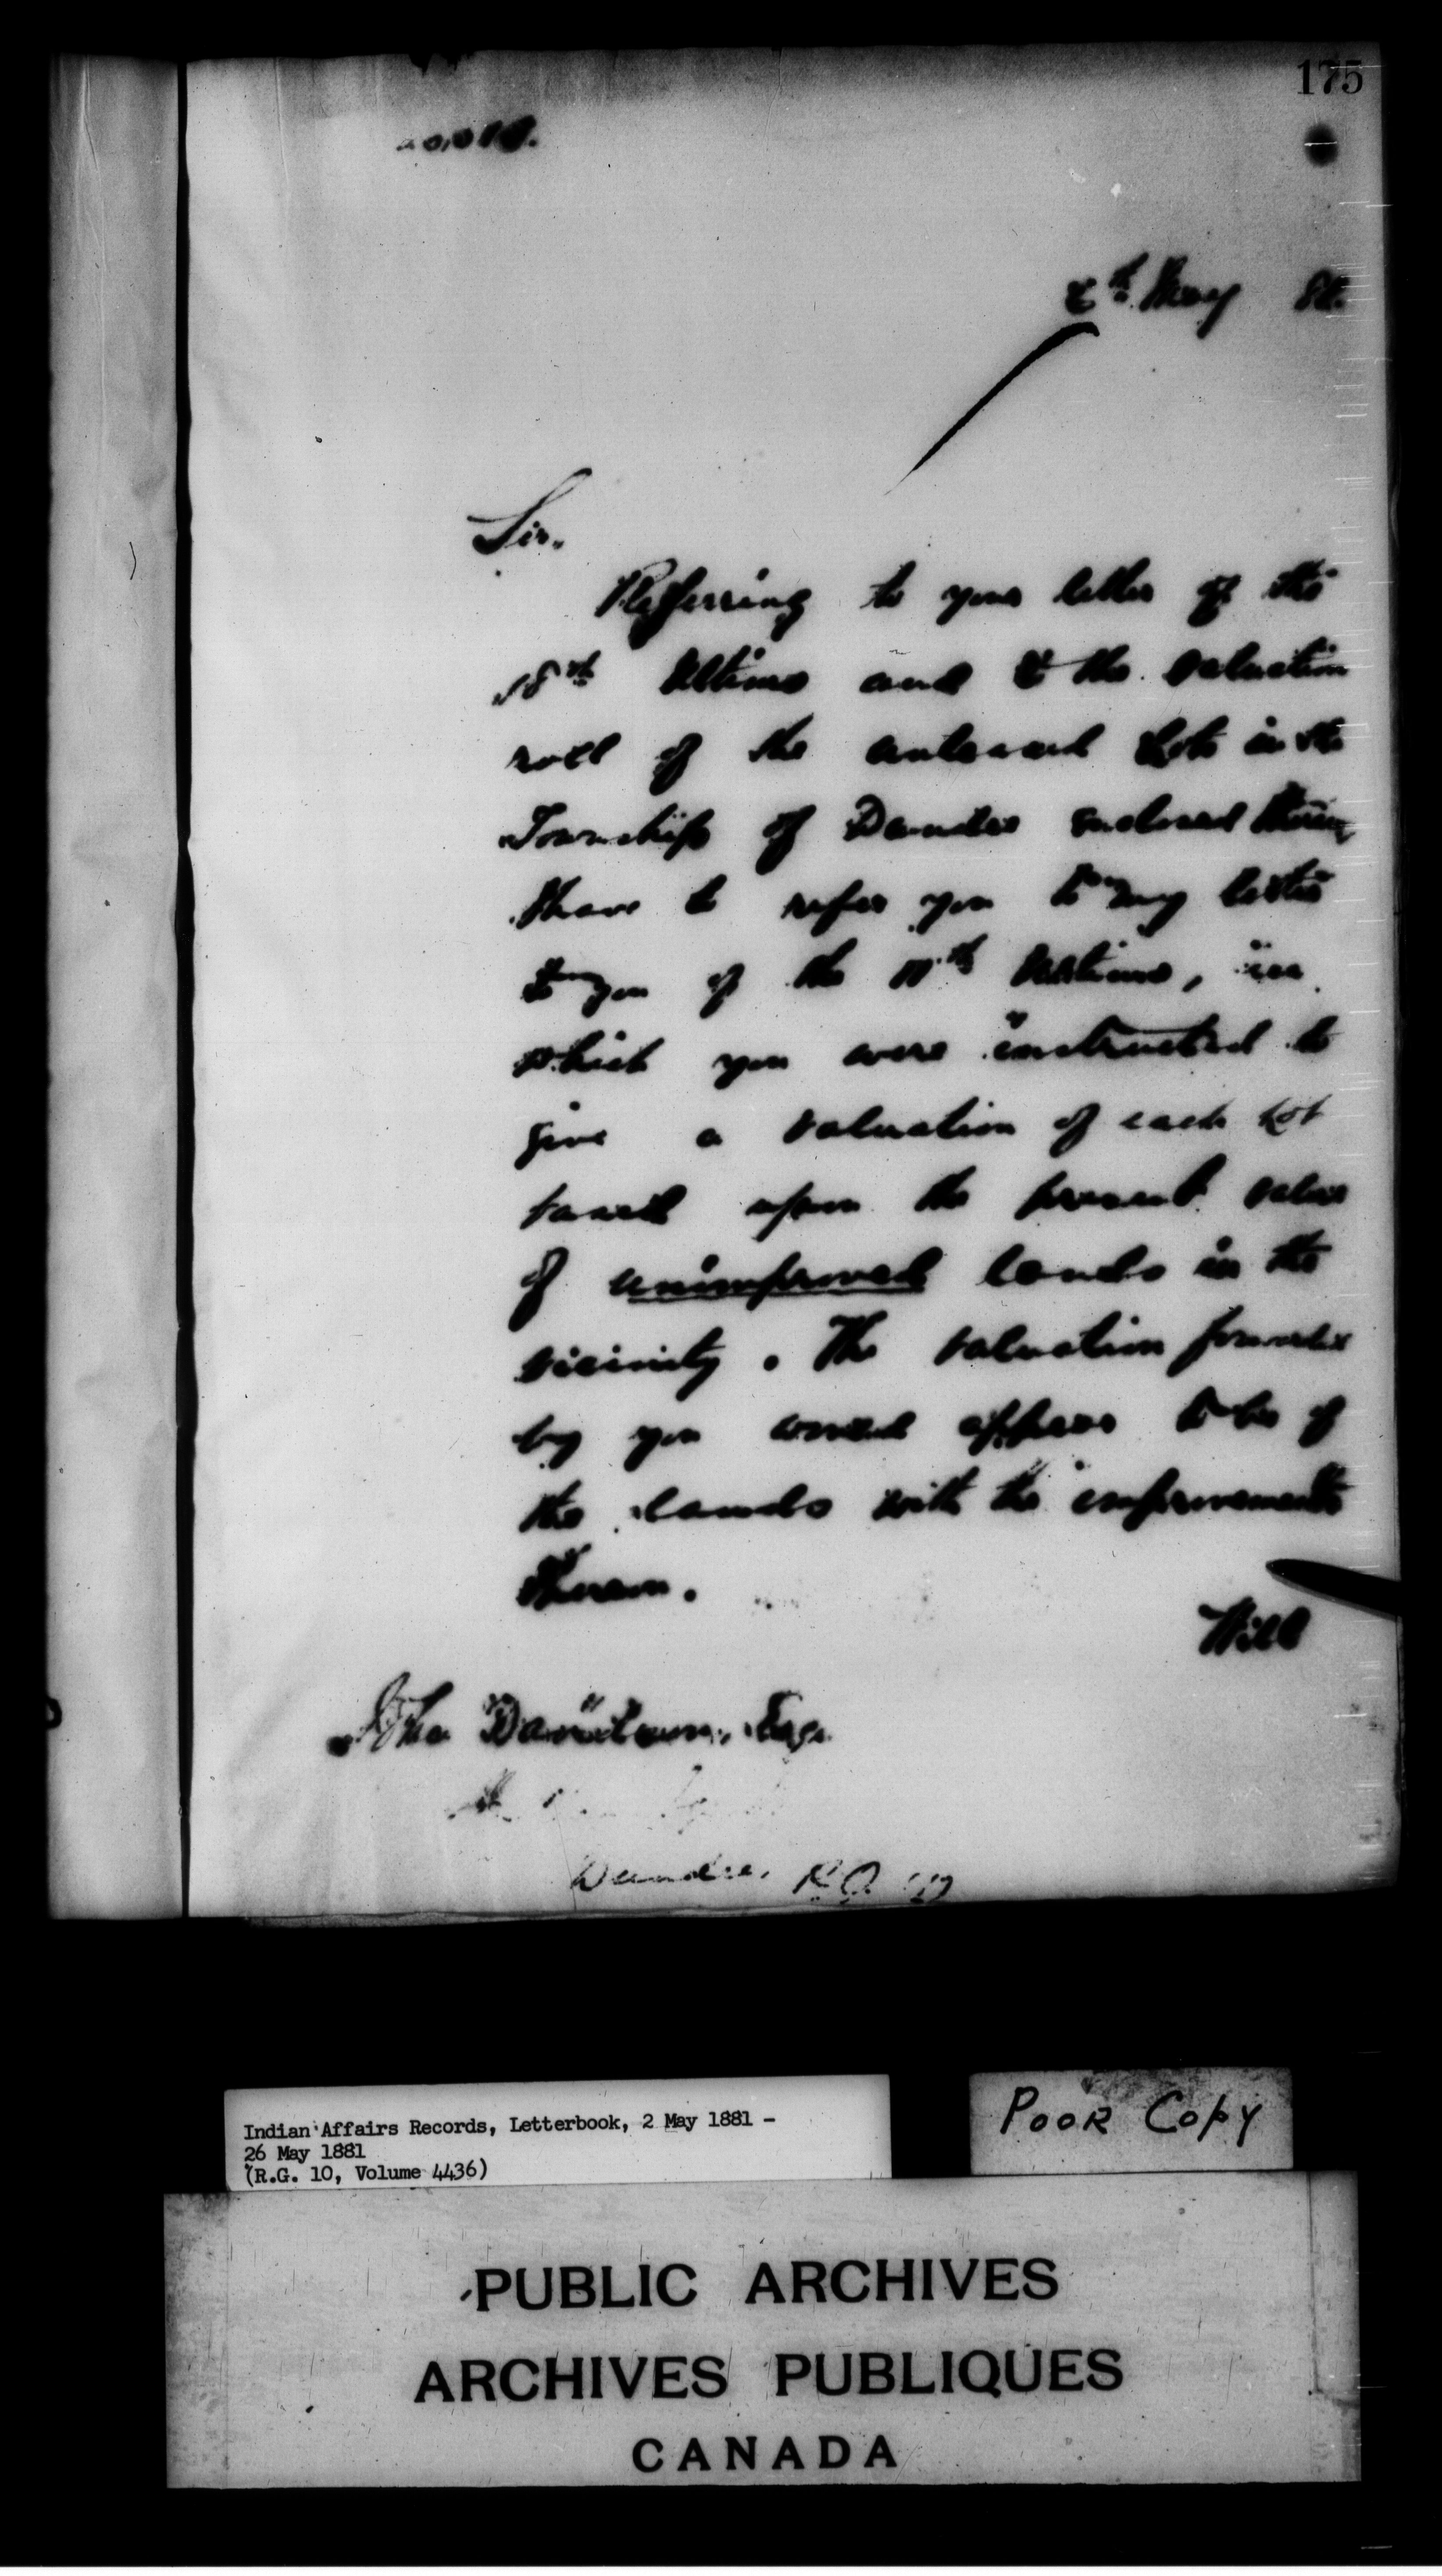 175
th May 81.
Sir.
Referring to your letter of the
18th Ultimo and to the valuation
roll of the unleased Lots in the
Township of Dundee enclosed therein
I have to refer you to my letter
to you of the 11th Ultimo, in
which you were instructed to
give a valuation of each Lot
based upon the present value
of unimproved lands in the
vicinity. The valuation forwarded
by you would appear to be of
the lands with the improvements
thereon.
Will
John Davidson, Esqr.
Dundee, P.Q.
Indian Affairs Records, Letterbook, 2 May 1881 -
26 May 1881
(R.G. 10, Volume 4436)
POOR COPY
PUBLIC ARCHIVES
ARCHIVES PUBLIQUES
CANADA